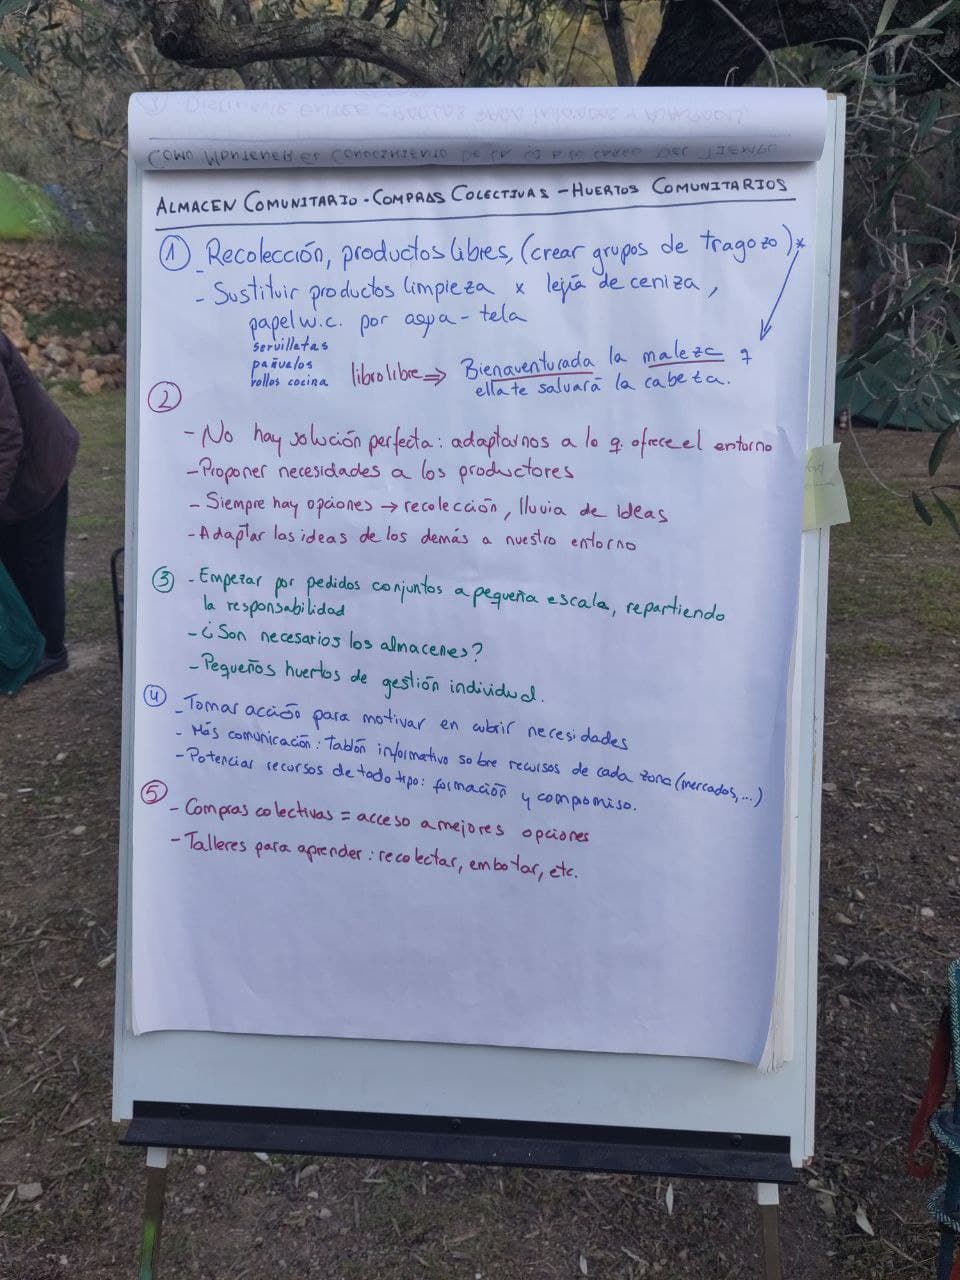 ALMACEN COMUNITARIO - COMPRAS COLECTIVAS - HUERTOS COMUNITARIOS
① - Recolección, productos libres, (crear grupos de tragozo)*
- Sustituir productos limpieza x lejía de ceniza,
papel w.c. por agua - tela
servilletas
pañuelos
rollos cocina
libro libre ⇒ Bienaventurada la maleza q
ella te salvará la cabeza.
②
- No hay solución perfecta: adaptarnos a lo q. ofrece el entorno
- Proponer necesidades a los productores
- Siempre hay opciones → recolección, lluvia de ideas
- Adaptar las ideas de los demás a nuestro entorno
③ - Empezar por pedidos conjuntos a pequeña escala, repartiendo
la responsabilidad
- ¿Son necesarios los almacenes?
- Pequeños huertos de gestión individual.
④ - Tomar acción para motivar en cubrir necesidades
- Más comunicación: Tablón informativo sobre recursos de cada zona (mercados,...)
- Potenciar recursos de todo tipo: formación y compromiso.
⑤
- Compras colectivas = acceso a mejores opciones
- Talleres para aprender: recolectar, embotar, etc.